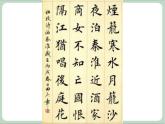 煙籠寒水月籠沙
夜泊秦淮近酒家
商女不知亡國恨
隔江猶唱後庭花
杜牧詩泊秦淮